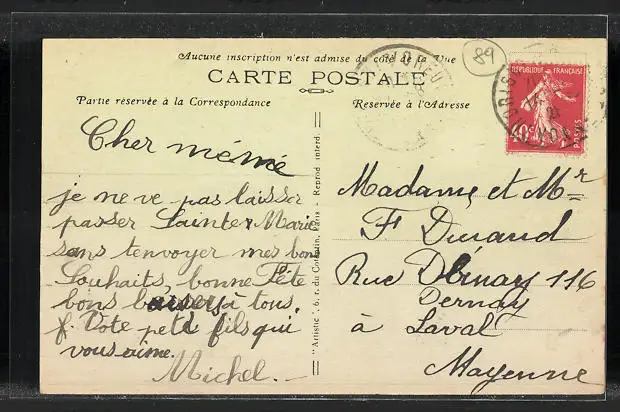 Aucune inscription n'est admise du côté de la Vue
89
CARTE POSTALE
Partie réservée à la Correspondance
Réservée à l'Adresse
RÉPUBLIQUE FRANÇAISE
40c
POSTES
Cher mémé
je ne ve pas laisser
passer Sainte Marie
sans t'envoyer mes bons
Souhaits, bonne Fête
bons baisers à tous.
f. Vote petit fils qui
vous aime.
Michel.
"Artistic", 6, r. du Cotentin, Paris - Reprod. interd.
Madame et Mr
F Durand
Rue Bernay 116
Dernay
à Laval
Mayenne